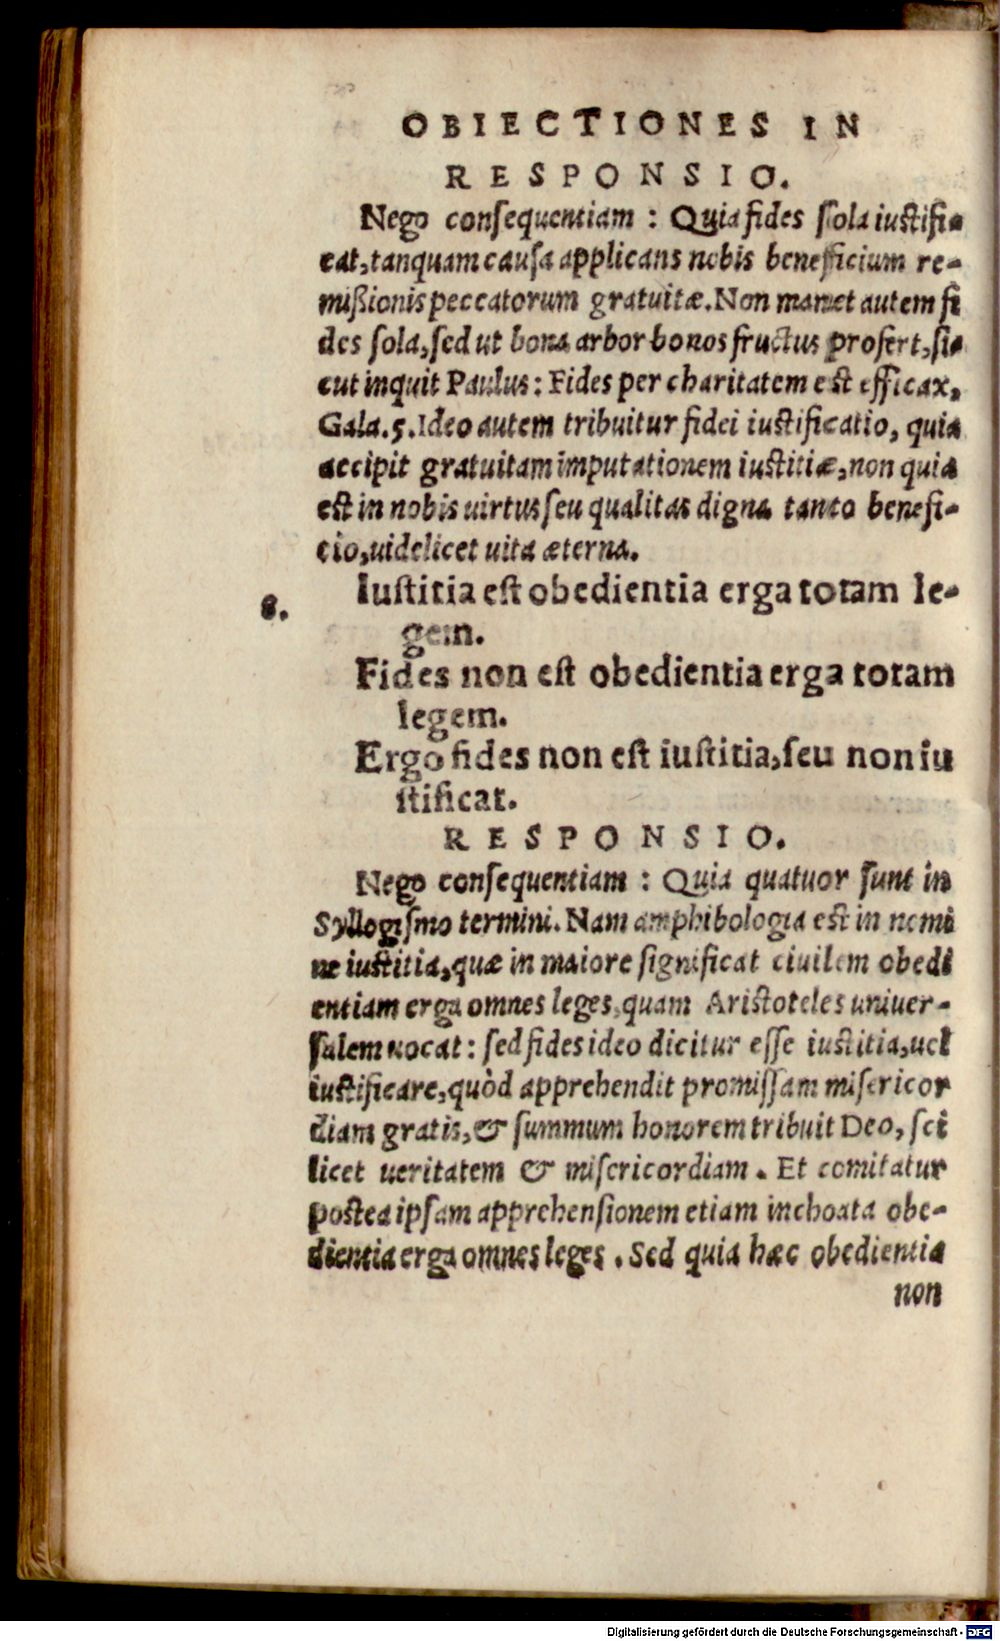 OBIECTIONES IN
RESPONSIO.
Nego consequentiam : Quia fides sola iustifi-
cat, tanquam causa applicans nobis beneficium re-
mißionis peccatorum gratuitæ. Non manet autem fi
des sola, sed ut bona arbor bonos fructus profert, si-
cut inquit Paulus: Fides per charitatem est efficax,
Gala. 5. Ideo autem tribuitur fidei iustificatio, quia
accipit gratuitam imputationem iustitiæ, non quia
est in nobis uirtus seu qualitas digna tanto benefi-
cio, uidelicet uita æterna.
8. Iustitia est obedientia erga totam le-
gem.
Fides non est obedientia erga totam
legem.
Ergo fides non est iustitia, seu non iu
stificat.
RESPONSIO.
Nego consequentiam : Quia quatuor sunt in
Syllogismo termini. Nam amphibologia est in nomi
ne iustitia, quæ in maiore significat ciuilem obedi
entiam erga omnes leges, quam Aristoteles uniuer-
salem uocat: sed fides ideo dicitur esse iustitia, uel
iustificare, quòd apprehendit promissam misericor
diam gratis, & summum honorem tribuit Deo, sci
licet ueritatem & misericordiam. Et comitatur
postea ipsam apprehensionem etiam inchoata obe-
dientia erga omnes leges. Sed quia hæc obedientia
non
Digitalisierung gefördert durch die Deutsche Forschungsgemeinschaft - DFG